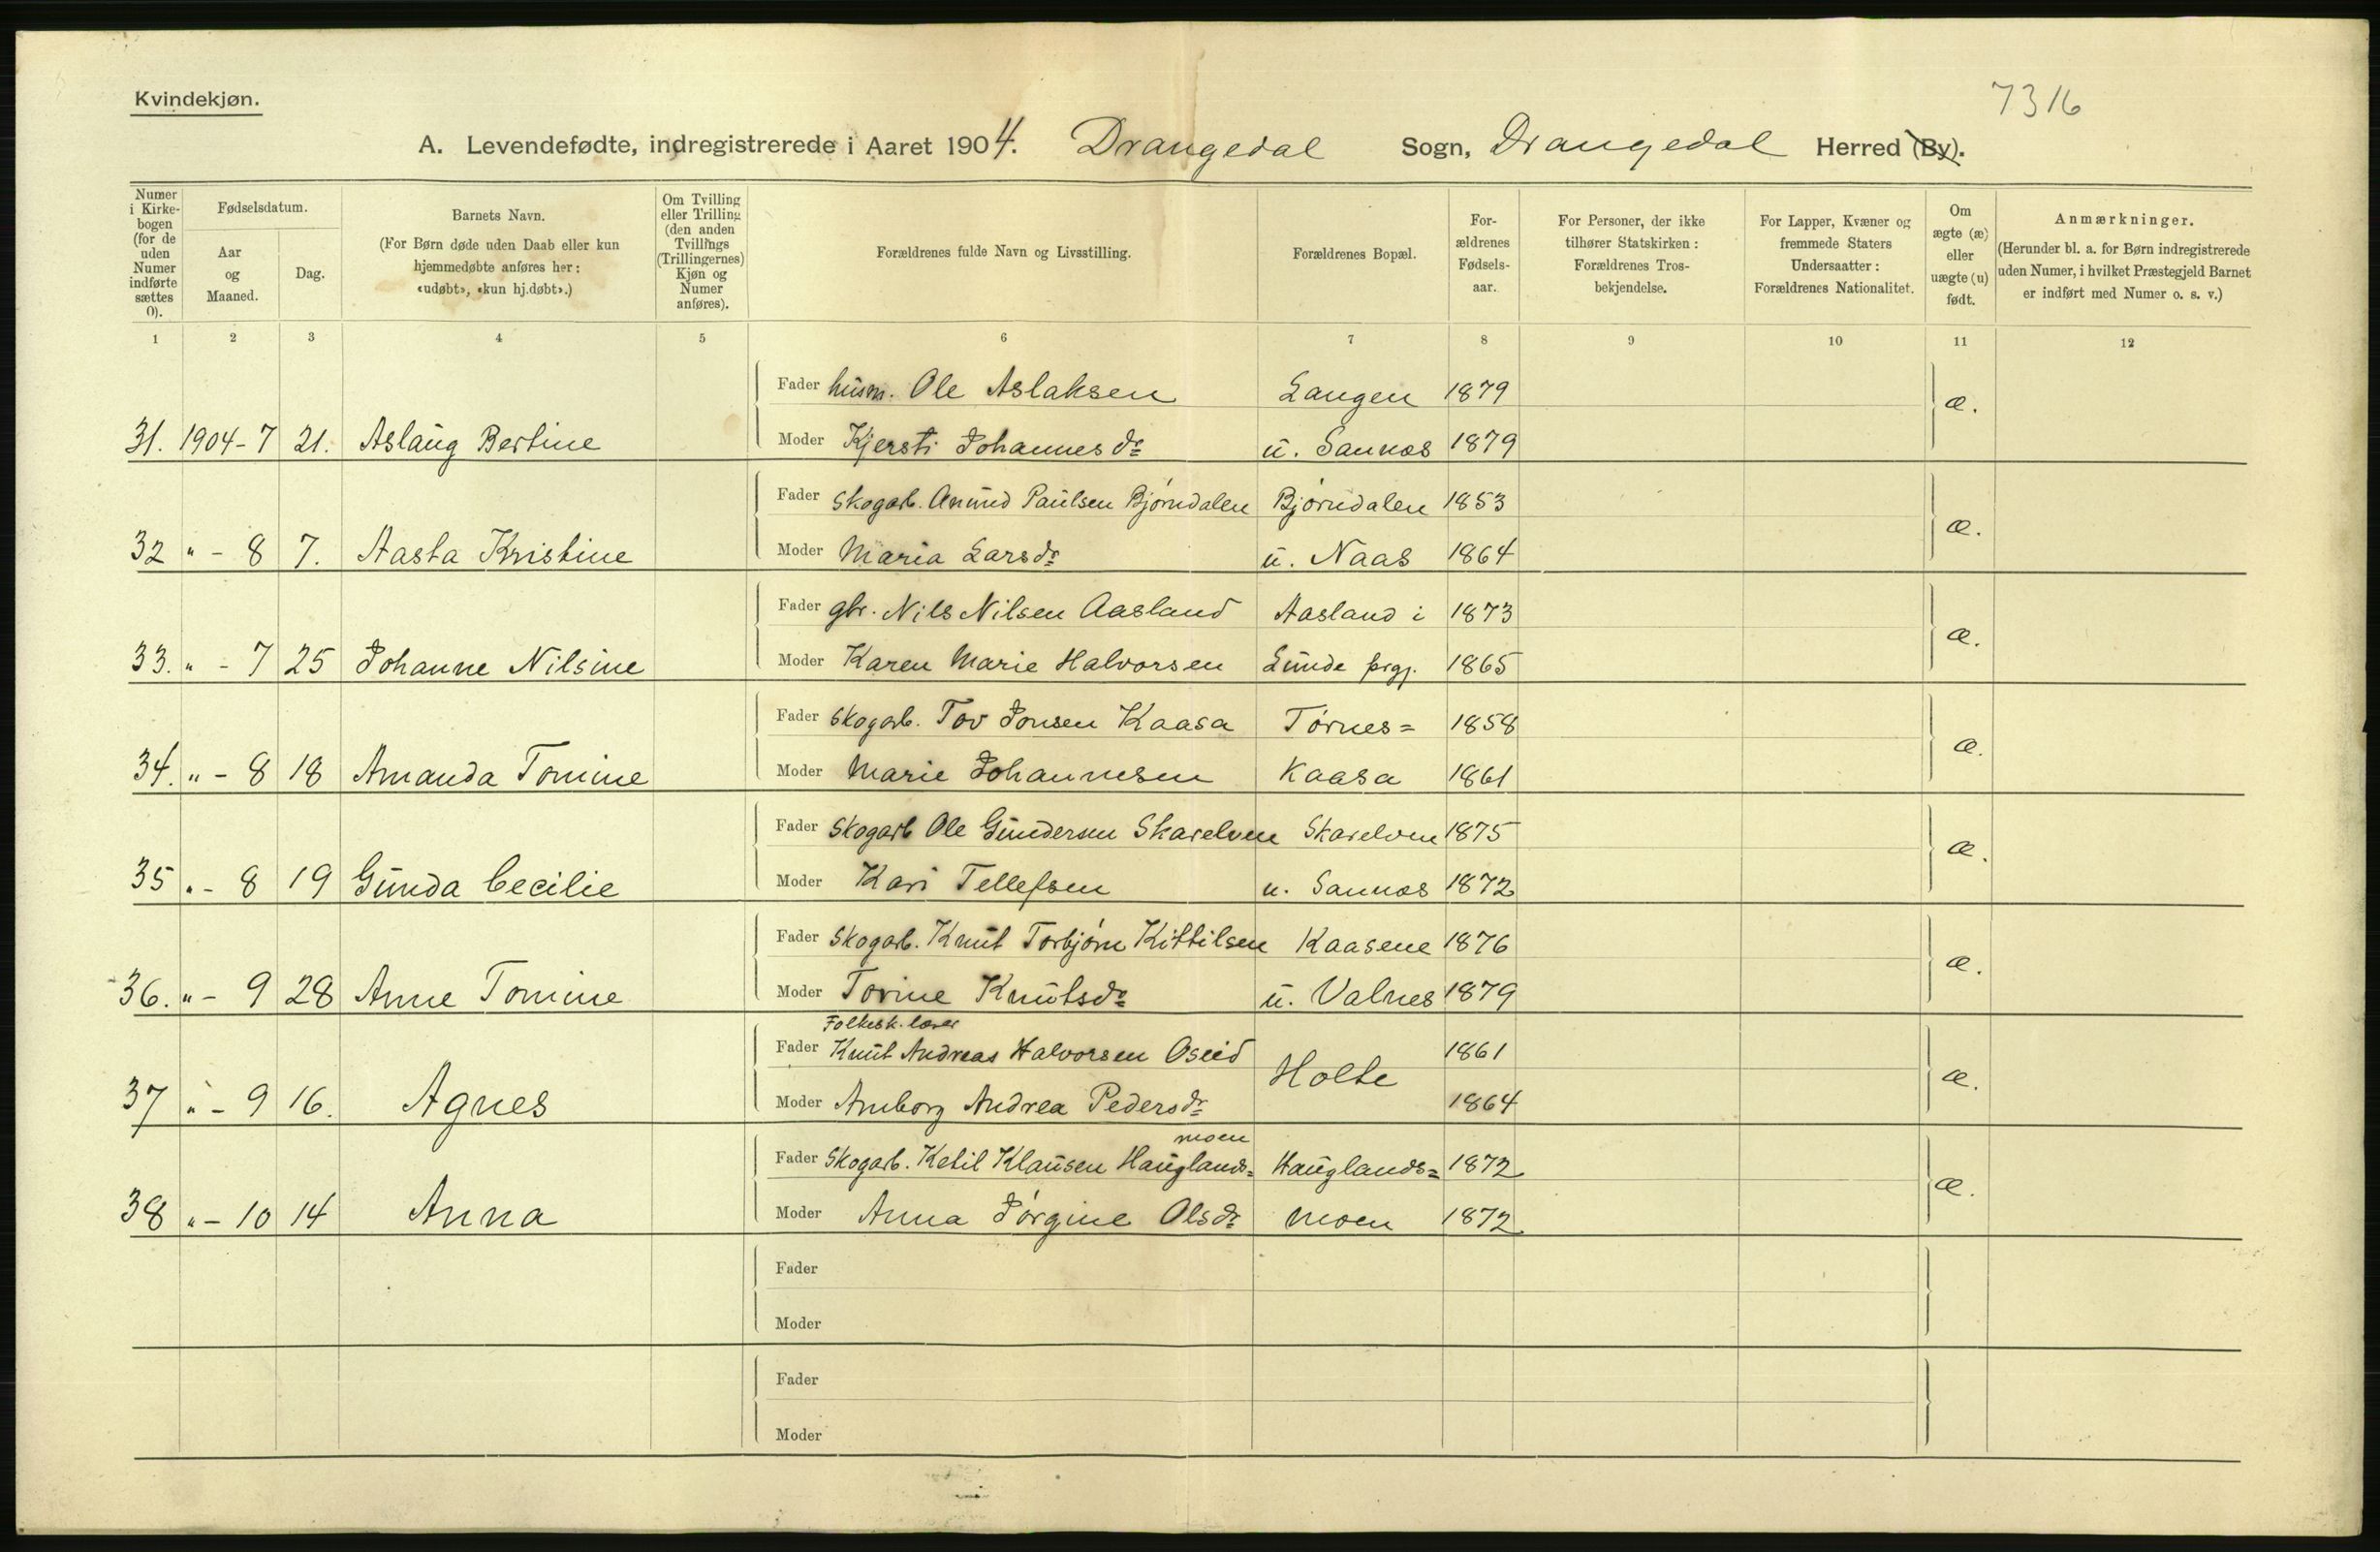 7316
Kvindekjøn.
A. Levendefødte, indregistrerede i Aaret 1904. Drangedal Sogn, Drangedal Herred (By).
Numer i Kirkebogen (for de uden Numer indførte sættes 0).
Fødselsdatum.
Aar og Maaned.
Dag.
Barnets Navn.
(For Børn døde uden Daab eller kun hjemmedøbte anføres her: «udøbt», «kun hj.døbt».)
Om Tvilling eller Trilling (den anden Tvillings (Trillingernes) Kjøn og Numer anføres).
Forældrenes fulde Navn og Livsstilling.
Forældrenes Bopæl.
For-ældrenes Fødsels-aar.
For Personer, der ikke tilhører Statskirken: Forældrenes Tros-bekjendelse.
For Lapper, Kvæner og fremmede Staters Undersaatter: Forældrenes Nationalitet.
Om ægte (æ) eller uægte (u) født.
Anmærkninger.
(Herunder bl. a. for Børn indregistrerede uden Numer, i hvilket Præstegjeld Barnet er indført med Numer o. s. v.)
1 2 3 4 5 6 7 8 9 10 11 12
Fader husm. Ole Aslaksen Langen 1879 æ.
31. 1904-7 21. Aslaug Bertine Moder Kjersti Johannesdr u. Sannæs 1879
Fader Skogarb. Anund Paulsen Bjørndalen Bjørndalen 1853 æ.
32 " - 8 7. Aasta Kristine Moder Maria Larsdr u. Naas 1864
Fader gbr. Nils Nilsen Aasland Aasland i 1873 æ.
33. " - 7 25 Johanne Nilsine Moder Karen Marie Halvorsen Lunde prgj. 1865
Fader Skogarb. Tov Jonsen Kaasa Tørnes= 1858 æ.
34. " - 8 18 Amanda Tomine Moder Marie Johannesen Kaasa 1861
Fader Skogarb Ole Gundersen Skarelven Skarelven 1875 æ.
35 " - 8 19 Gunda Cecilie Moder Kari Tellefsen u. Sannæs 1872
Fader Skogarb. Knut Torbjørn Kittilsen Kaasene 1876 æ.
36. " - 9 28 Anne Tomine Moder Torine Knutsdr u. Valnes 1879
Folkesk. lærer
Fader Knut Andreas Halvorsen Oseid Holte 1861 æ.
37 " - 9 16. Agnes Moder Amborg Andrea Pedersdr 1864
moen
Fader Skogarb. Ketil Klausen Hauglands= Hauglands= 1872 æ.
38 " - 10 14 Anna Moder Anna Jørgine Olsdr moen 1872
Fader
Moder
Fader
Moder